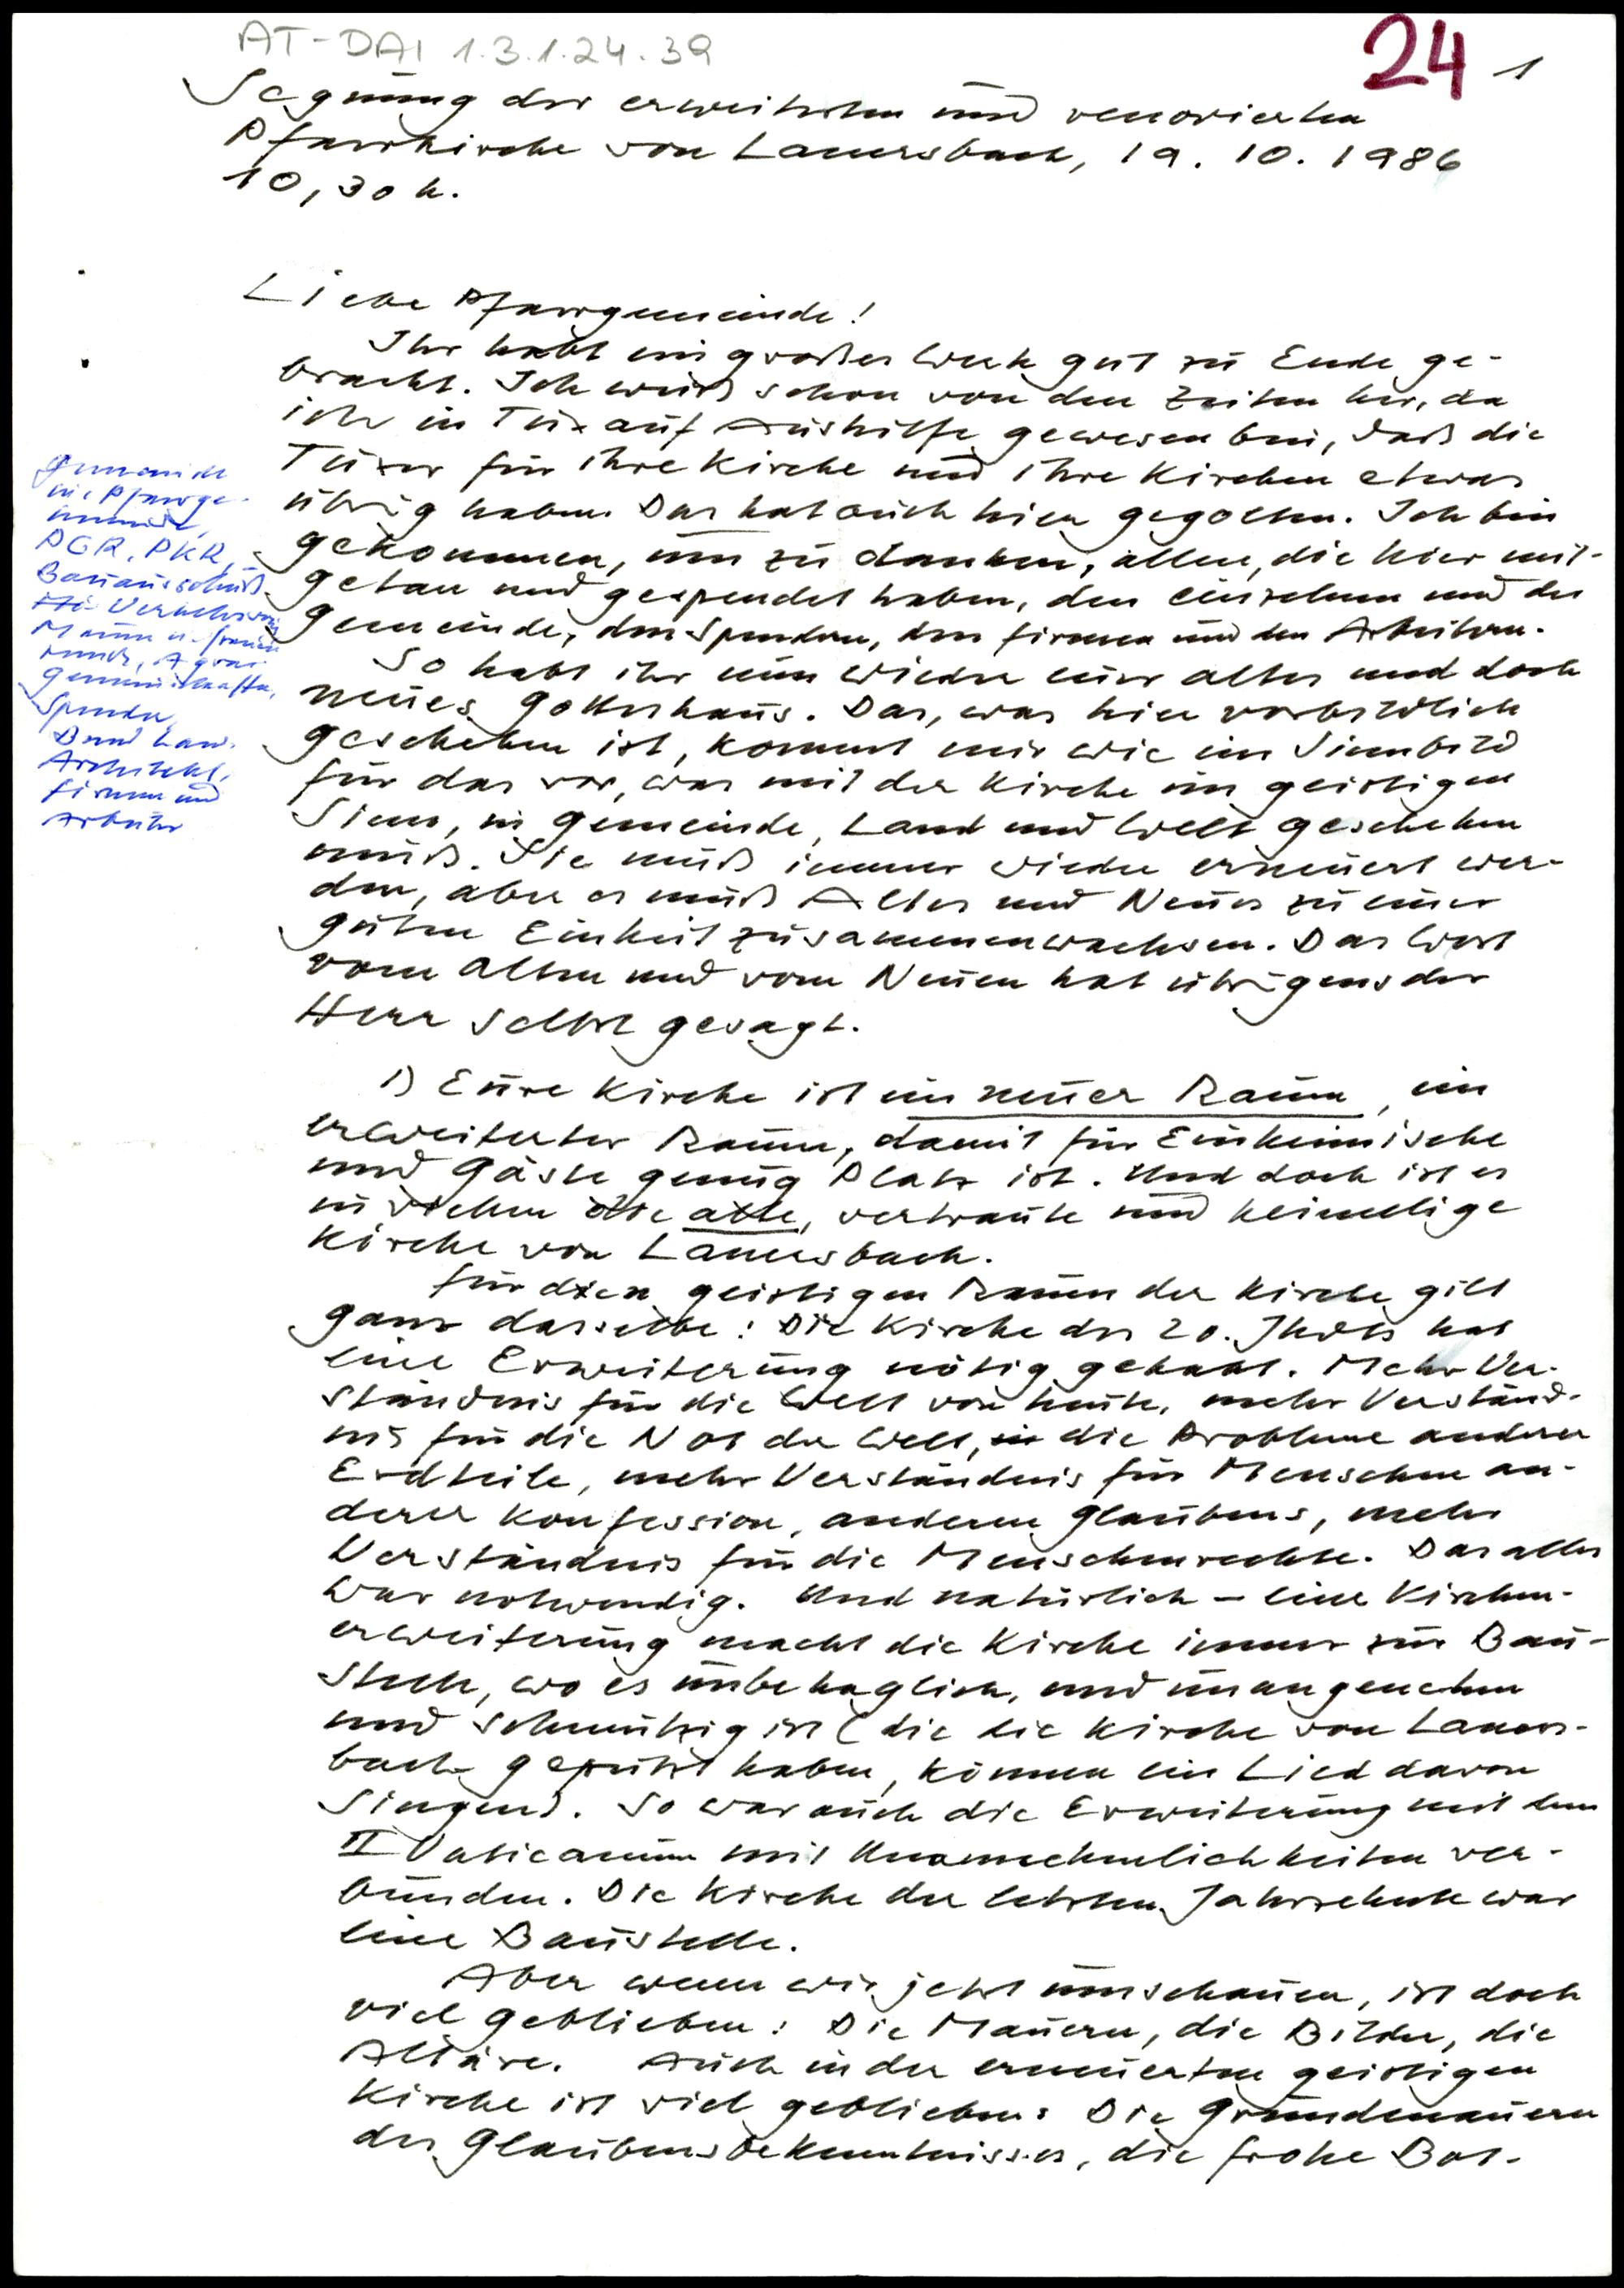 AT-DAI 1.3.1.24.39
24 1
Segnung der erweiterten und renovierten
Pfarrkirche von Lanersbach, 19. 10. 1986
10,30 h.
Liebe Pfarrgemeinde!
Ihr habt ein großes Werk gut zu Ende ge-
bracht. Ich weiß schon von den Zeiten her, da
ich in Tux auf Aushilfe gewesen bin, daß die
Tuxer für ihre Kirche und ihre Kirchen etwas
übrig haben. Das hat auch hier gegolten. Ich bin
gekommen, um zu danken, allen, die hier mit-
getan und gespendet haben, den einzelnen und der
Gemeinde, den Spendern, den Firmen und den Arbeitern.
So habt ihr nun wieder euer altes und doch
neues Gotteshaus. Das, was hier vorbildlich
geschehen ist, kommt mir wie ein Sinnbild
für das vor, was mit der Kirche im geistigen
Sinn, in Gemeinde, Land und Welt geschehen
muß. Sie muß immer wieder erneuert wer-
den, aber es muß Altes und Neues zu einer
guten Einheit zusammenwachsen. Das Wort
vom Alten und vom Neuen hat übrigens der
Herr selbst gesagt.
Gemeinde
wie Pfarrge-
meinde,
PGR, PKR,
Bauausschuß
Verkehrsver
Männer u. Frauen
runde, Agrar
gemeinschaften,
Spender
Architekt,
Firmen und
Arbeiter
1) Eure Kirche ist ein neuer Raum, ein
erweiterter Raum, damit für Einheimische
und Gäste genug Platz ist. Und doch ist es
in vielem die alte, vertraute und heimelige
Kirche von Lanersbach.
Für den geistigen Raum der Kirche gilt
ganz dasselbe: Die Kirche des 20. Jhdts hat
eine Erweiterung nötig gehabt. Mehr Ver-
ständnis für die Welt von heute, mehr Verständ-
nis für die Not der Welt, die Probleme anderer
Erdteile, mehr Verständnis für Menschen an-
derer Konfession, anderen Glaubens, mehr
Verständnis für die Menschenrechte. Das alles
war notwendig. Und natürlich - eine Kirchen-
erweiterung macht die Kirche immer zur Bau-
stelle, wo es unbehaglich, und unangenehm
und schmutzig ist (die die Kirche von Laners-
bach geputzt haben, können ein Lied davon
singen). So war auch die Erweiterung mit dem
II Vaticanum mit Unannehmlichkeiten ver-
bunden. Die Kirche der letzten Jahrzehnte war
eine Baustelle.
Aber wenn wir jetzt umschauen, ist doch
viel geblieben: Die Mauern, die Bilder, die
Altäre. Auch in der erneuerten geistigen
Kirche ist viel geblieben: Die Grundmauern
des Glaubensbekenntnisses, die frohe Bot-